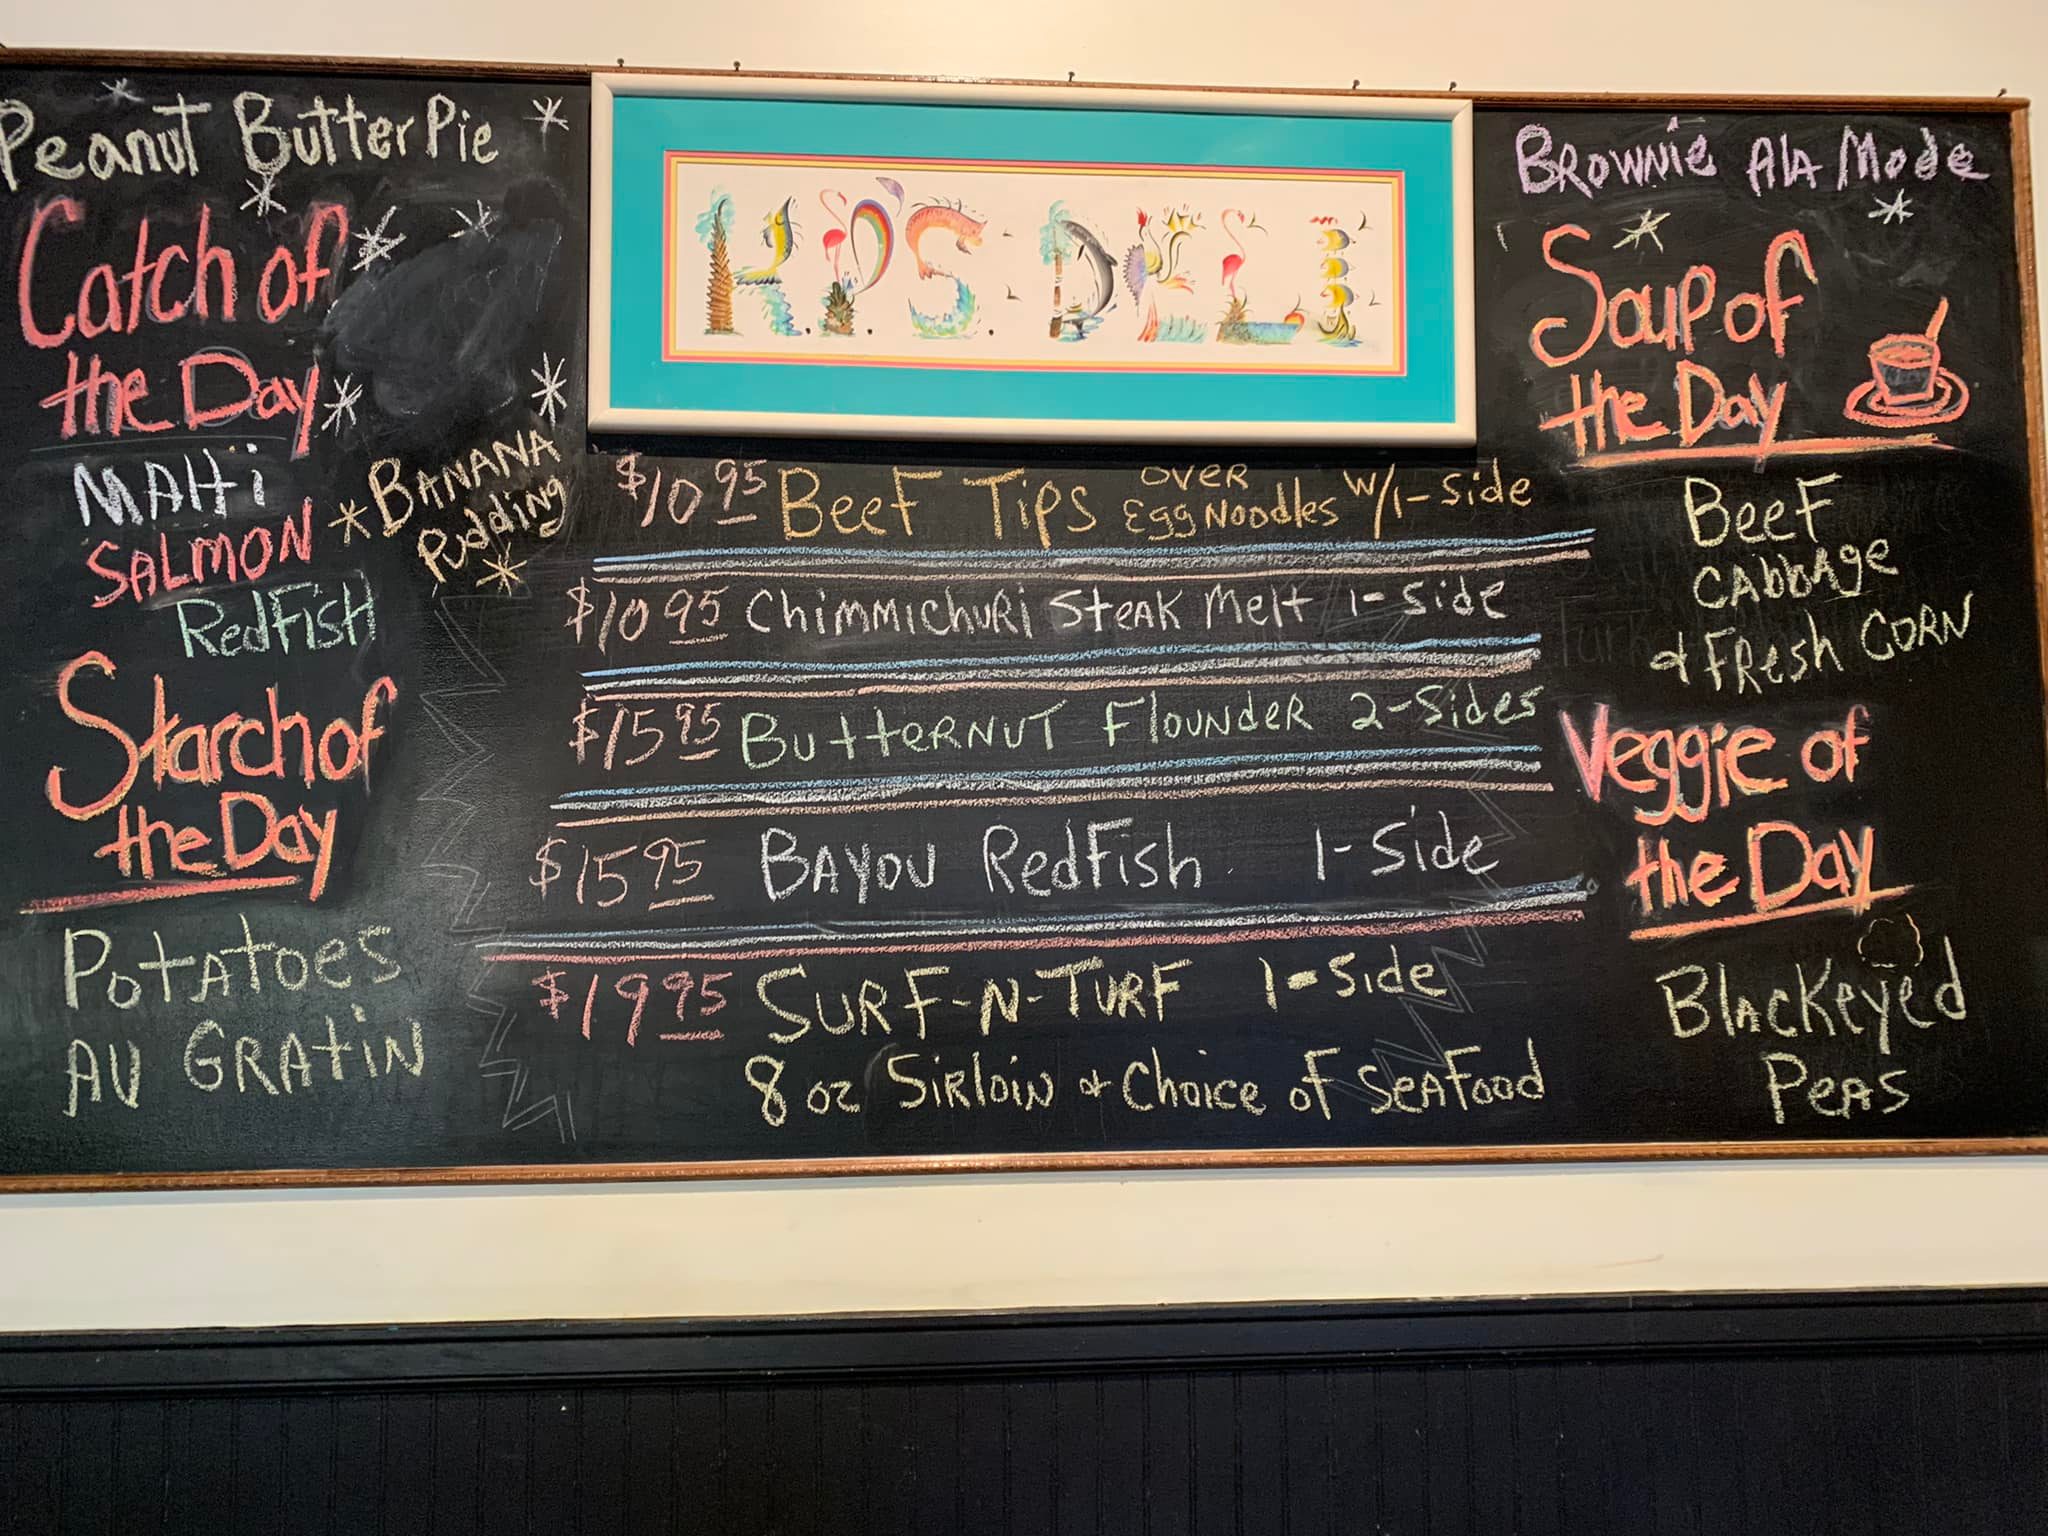 Peanut Butter Pie
Catch of
the Day
MAHi
SALMON
RedFisH
BANANA
Pudding
Starch of
the Day
POTATOES
AU GRATIN
K.P.S. DELI
$10 95 BeeF Tips OVER Egg NOODles W/1-Side
$10 95 CHiMMiCHURi STEAK MelT 1-Side
$15 95 BUTTERNUT FlOUNDER 2-Sides
$15 95 BAYOU RedFish 1-Side
$19 95 SURF-N-TURF 1-Side
8 oz SiRloiN & Choice of SEAFood
BROWNiE AlA Mode
Soup of
the Day
BeeF
CAbbAge
& FResh CORN
Veggie of
the Day
BlacKeyed
PeAs